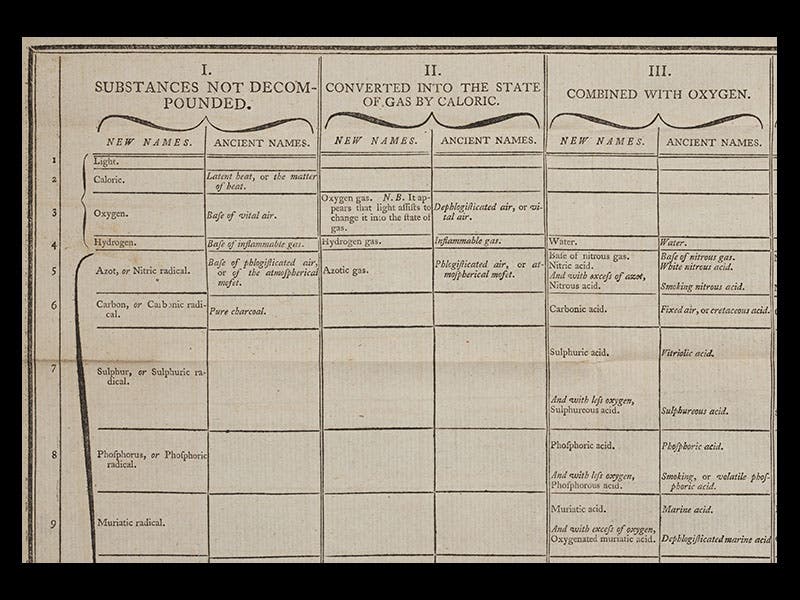 I.
SUBSTANCES NOT DECOM-
POUNDED.
II.
CONVERTED INTO THE STATE
OF GAS BY CALORIC.
III.
COMBINED WITH OXYGEN.
NEW NAMES.
ANCIENT NAMES.
NEW NAMES.
ANCIENT NAMES.
NEW NAMES.
ANCIENT NAMES.
1
Light.
2
Caloric.
Latent heat, or the matter
of heat.
3
Oxygen.
Baſe of vital air.
Oxygen gas. N. B. It ap-
pears that light aſſiſts to
change it into the ſtate of
gas.
Dephlogiſticated air, or vi-
tal air.
4
Hydrogen.
Baſe of inflammable gas.
Hydrogen gas.
Inflammable gas.
Water.
Water.
5
Azot, or Nitric radical.
Baſe of phlogiſticated air,
or of the atmoſpherical
mofet.
Azotic gas.
Phlogiſticated air, or at-
moſpherical mofet.
Baſe of nitrous gas.
Nitric acid.
And with exceſs of azot,
Nitrous acid.
Baſe of nitrous gas.
White nitrous acid.
Smoking nitrous acid.
6
Carbon, or Carbonic radi-
cal.
Pure charcoal.
Carbonic acid.
Fixed air, or cretaceous acid.
7
Sulphur, or Sulphuric ra-
dical.
Sulphuric acid.
And with leſs oxygen,
Sulphureous acid.
Vitriolic acid.
Sulphureous acid.
8
Phoſphorus, or Phoſphoric
radical.
Phoſphoric acid.
And with leſs oxygen,
Phoſphorous acid.
Phoſphoric acid.
Smoking, or volatile phoſ-
phoric acid.
9
Muriatic radical.
Muriatic acid.
And with exceſs of oxygen,
Oxygenated muriatic acid.
Marine acid.
Dephlogiſticated marine acid